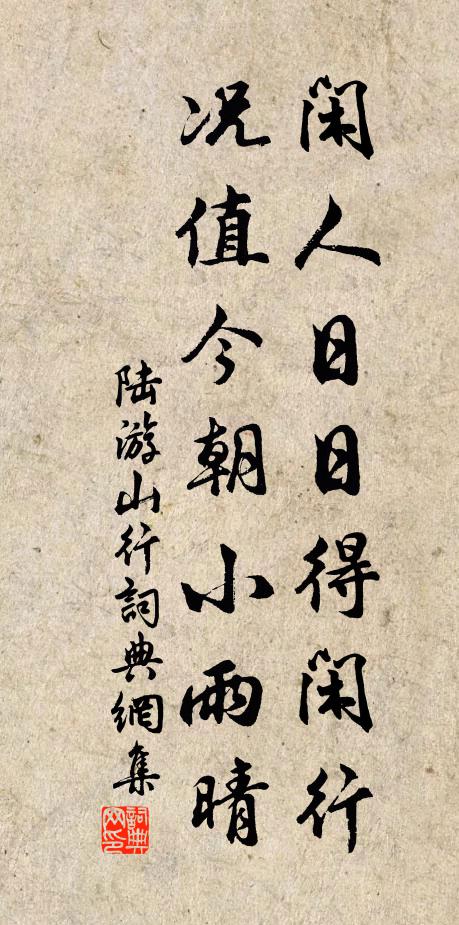 闲人日日得闲行
况值今朝小雨晴
陆游山行詞典網集
詞典网印